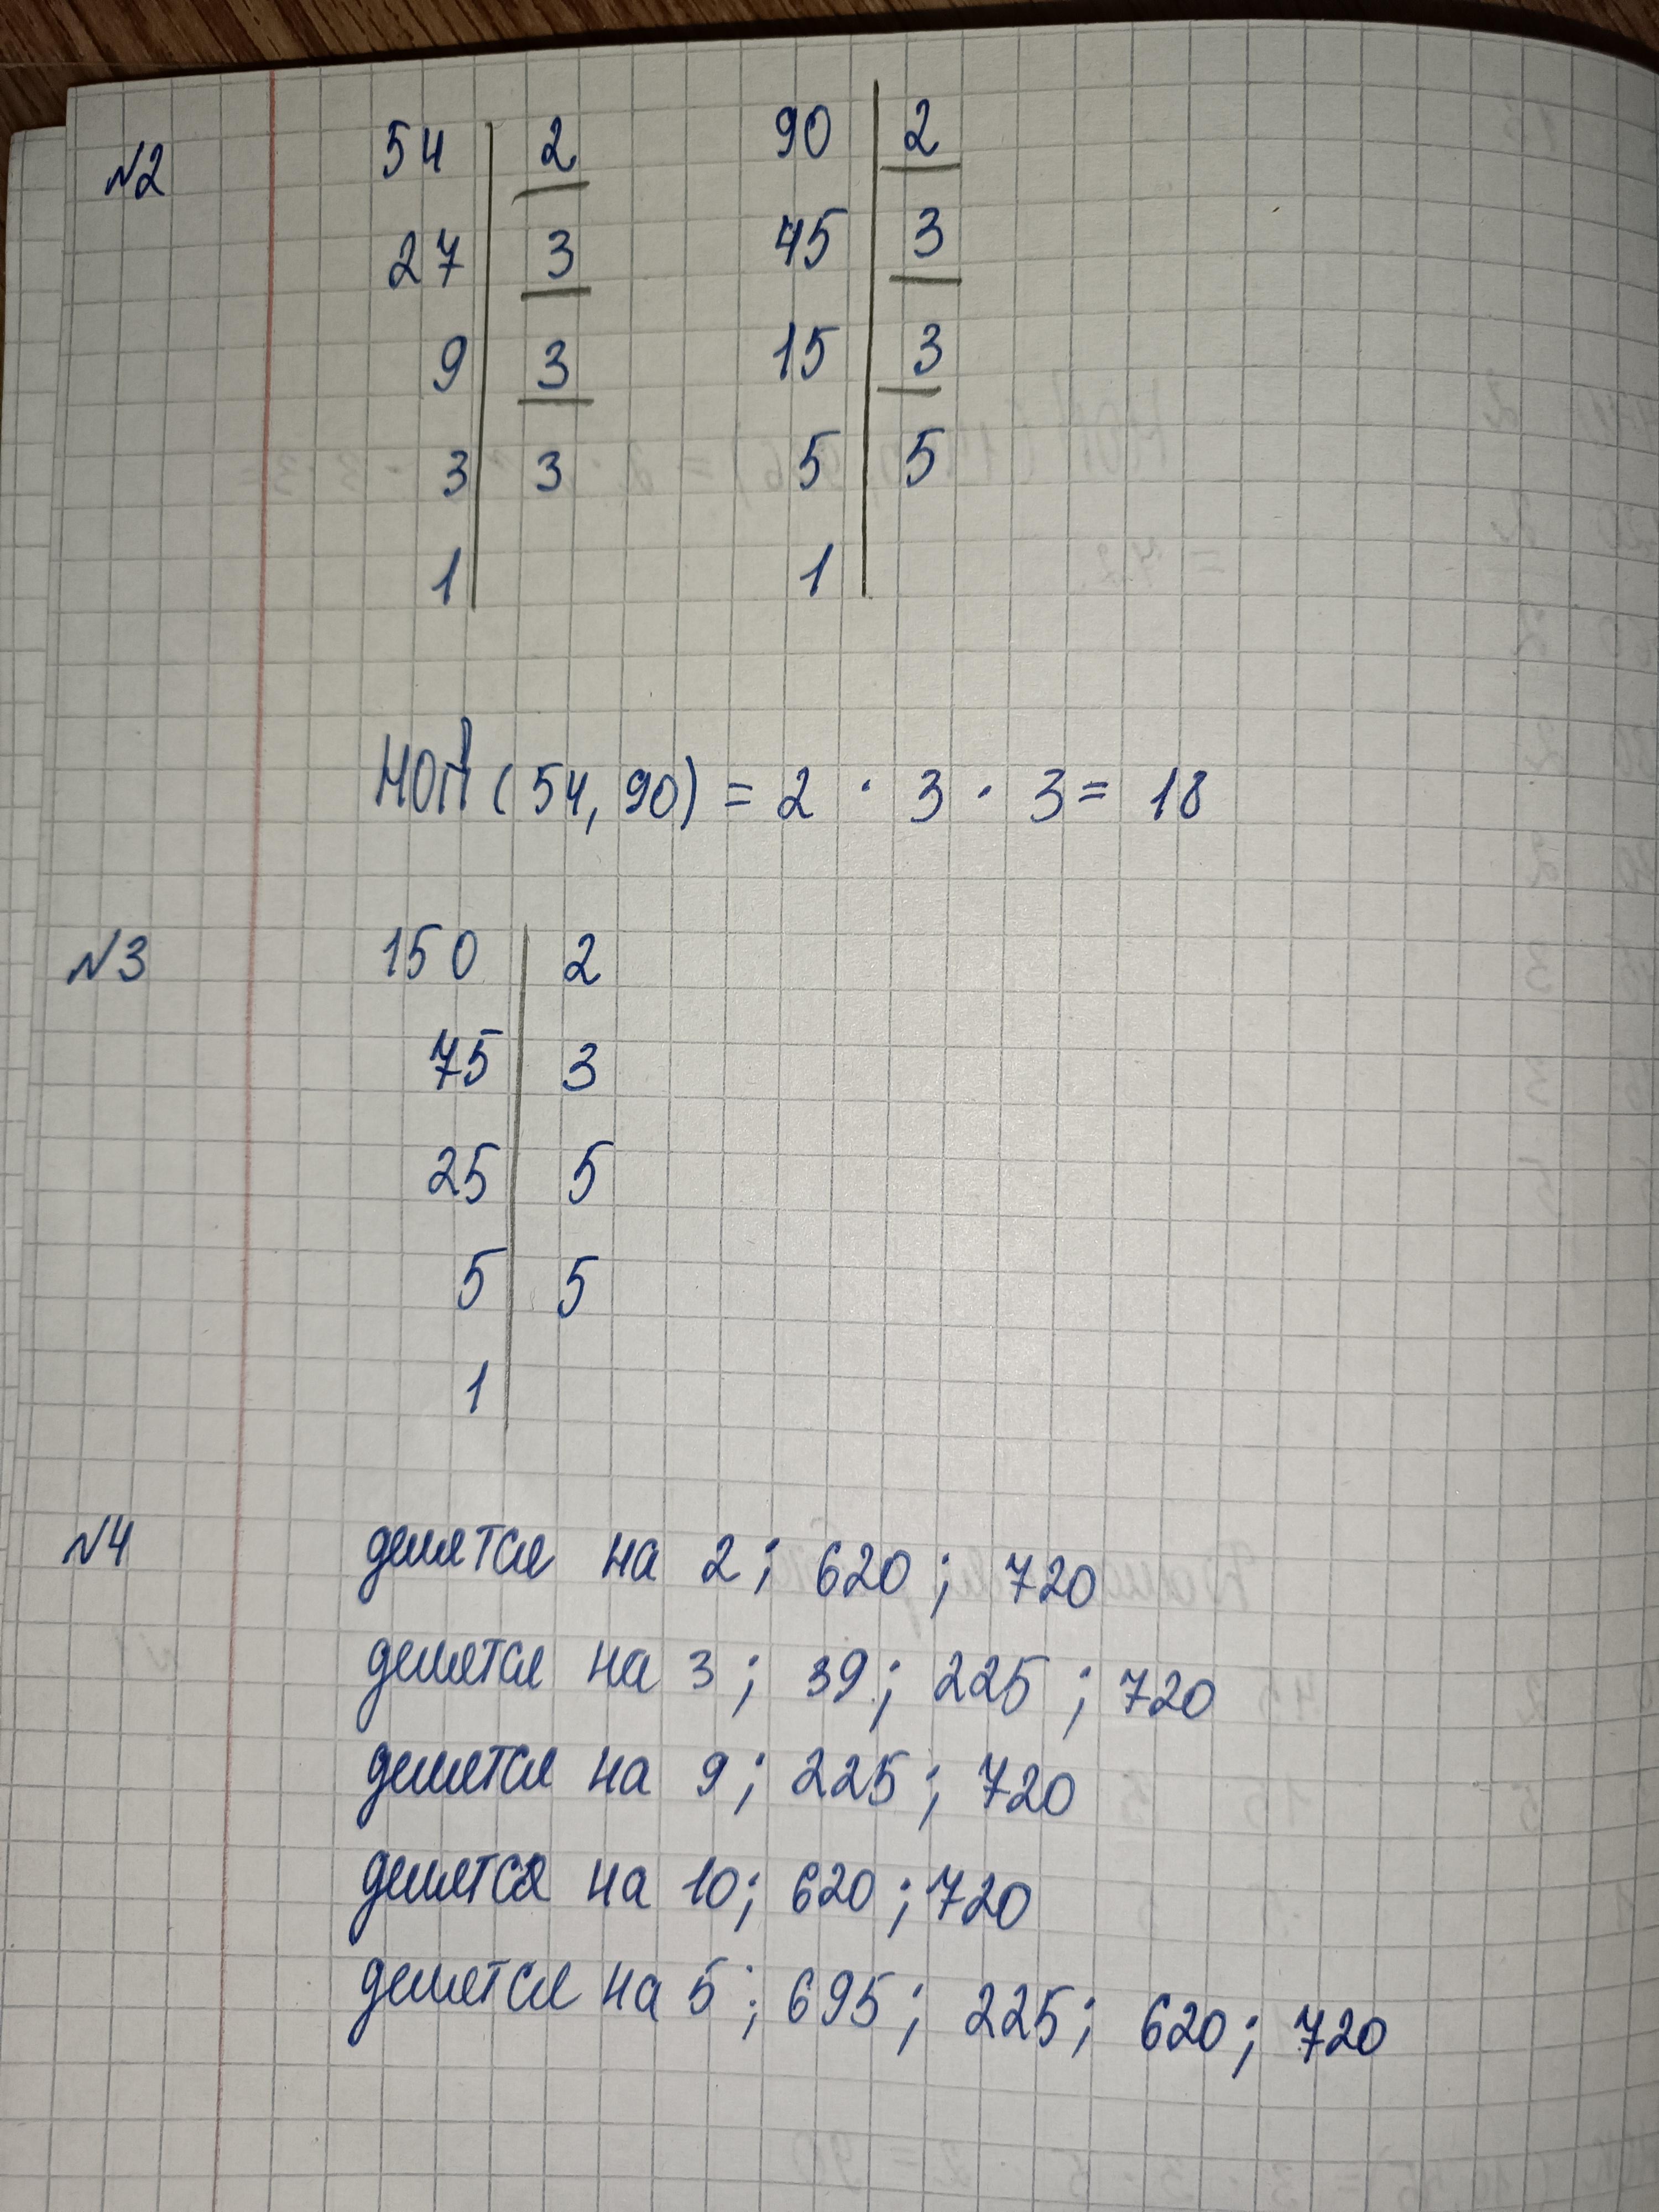 №2 54 | 2 90 | 2
27 | 3 45 | 3
9 | 3 15 | 3
3 | 3 5 | 5
1 | 1 |
НОД (54, 90) = 2 · 3 · 3 = 18
№3 150 | 2
75 | 3
25 | 5
5 | 5
1 |
№4 делятся на 2; 620; 720
делятся на 3; 39; 225; 720
делятся на 9; 225; 720
делятся на 10; 620; 720
делятся на 5; 695; 225; 620; 720